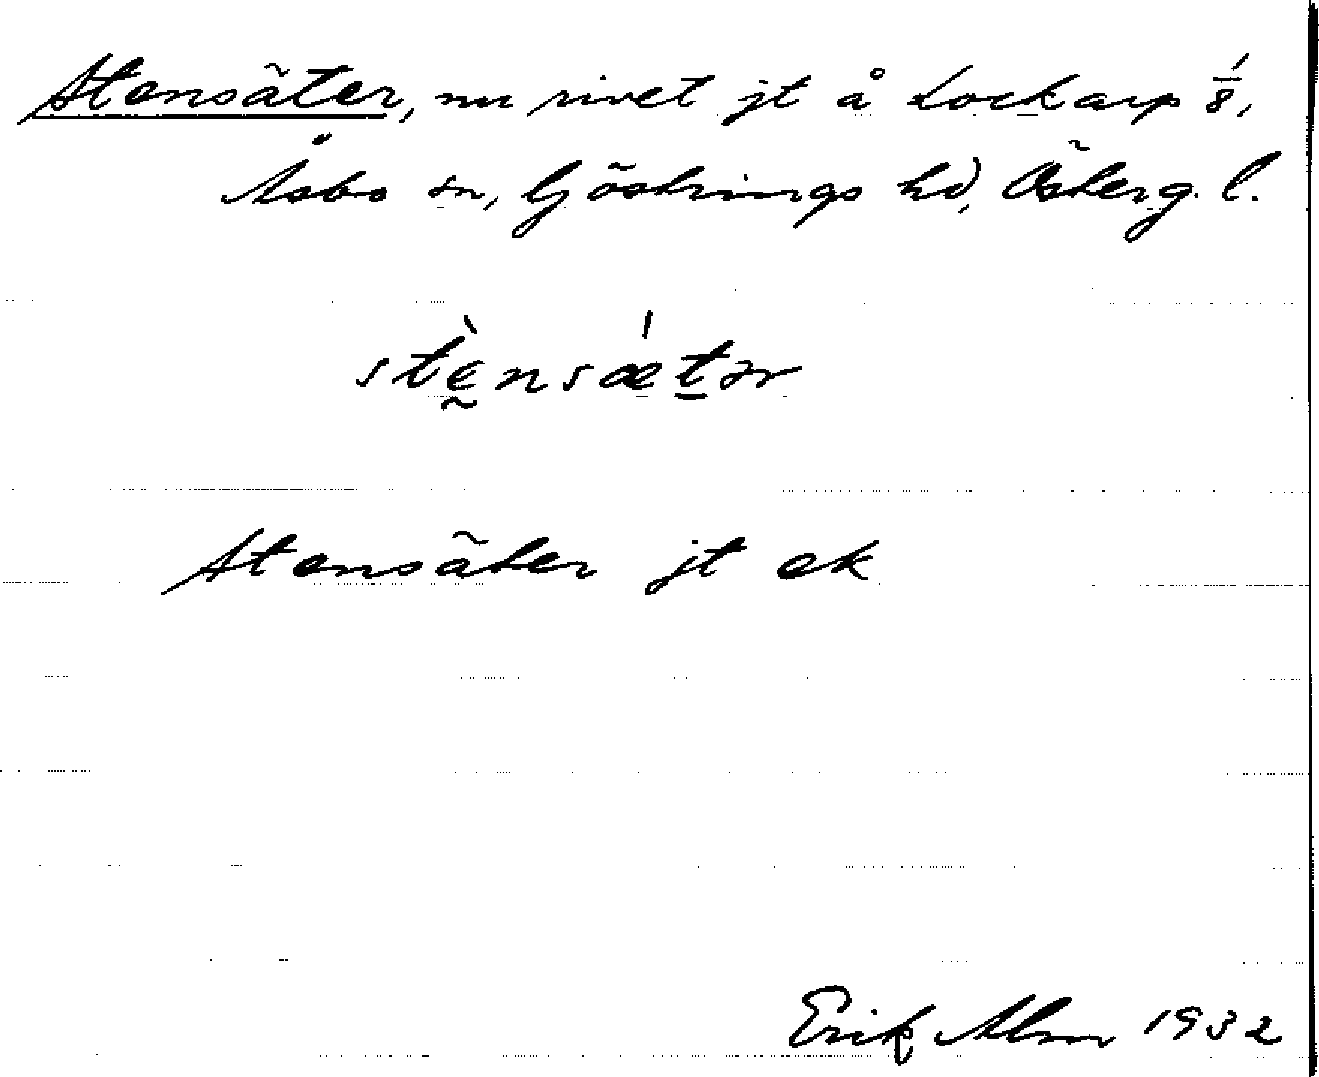 Stensäter, nu rivet jt å Lockarp 1/8,
Åsbo sn, Göstrings hd, Österg. l.
stḛ̀nsǽt̠ər
Stensäter jt ek
Erik Alm 1932